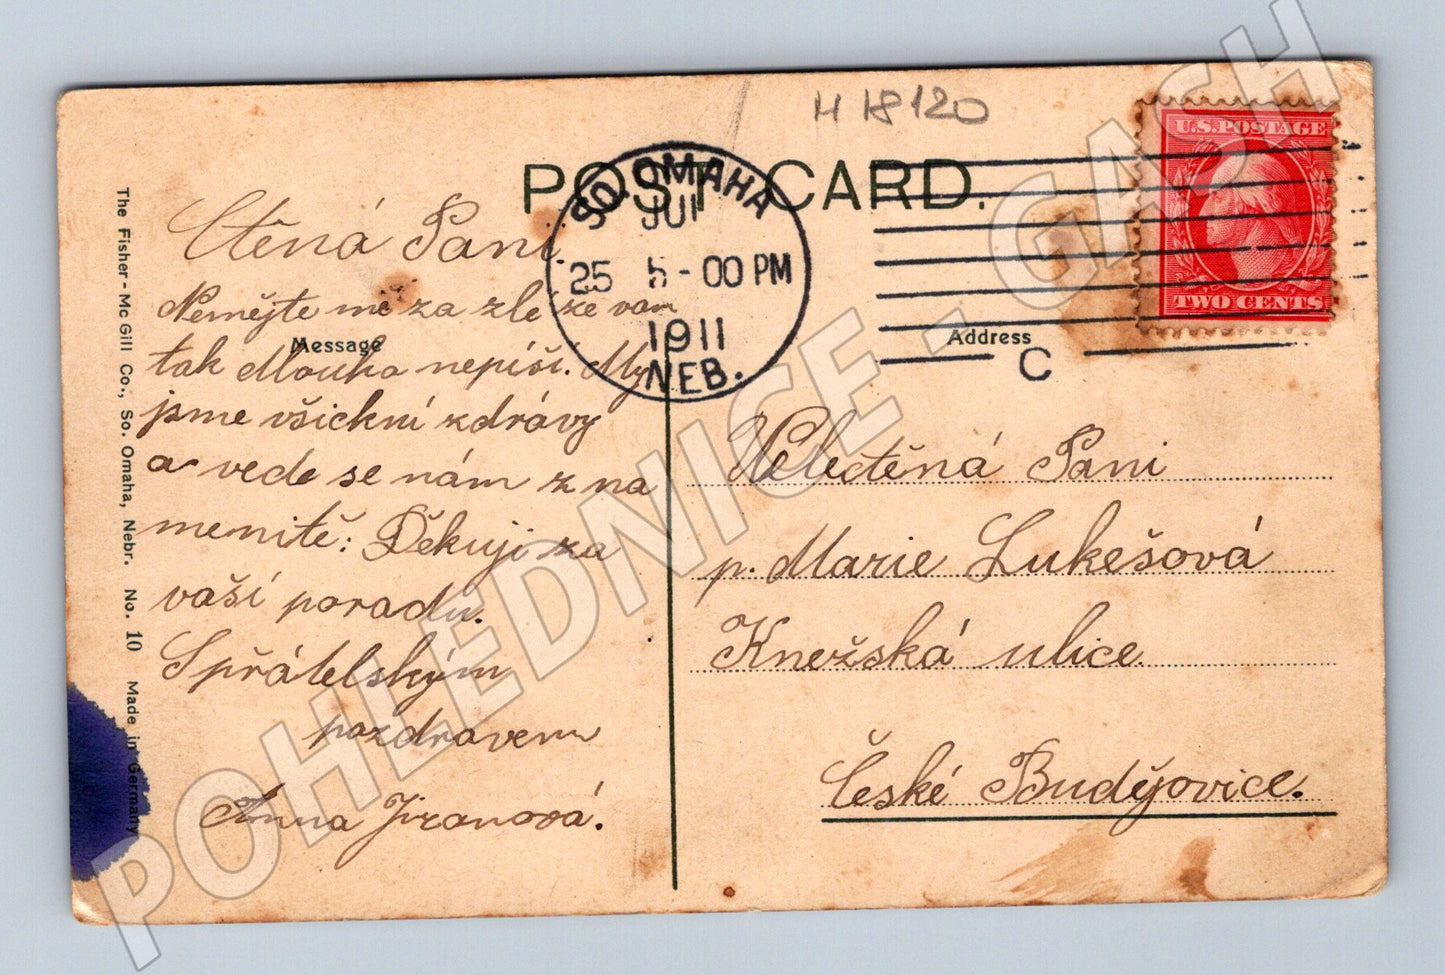 H 18120
POST CARD.
U.S. POSTAGE
TWO CENTS
SO. OMAHA
JUL
25 5-00 PM
1911
NEB.
C
Message
Address
Ctěná Paní.
Nemějte mě za zlé že vam
tak dlouho nepíší. My
jsme všickní zdrávy
a vede se nám z na
menitě: Děkuji za
vaší poradu.
Spřátelským
pozdravem
Anna Jiranová.
Velectěná Pani
p. Marie Lukešová
Knežská ulice.
České Budějovice.
The Fisher-Mc Gill Co., So. Omaha, Nebr. No. 10 Made in Germany
POHLEDNICE - GASH